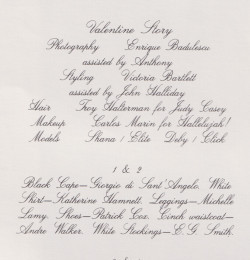 Valentine Story
Photography Enrique Badulescu
assisted by Anthony
Styling Victoria Bartlett
assisted by John Halliday
Hair Troy Halterman for Judy Casey
Makeup Carlos Marin for Hallelujah!
Models Shana / Elite Deby / Click
1 & 2
Black Cape—Giorgio di Sant'Angelo. White
Shirt—Katharine Hamnett. Leggings—Michelle
Lamy. Shoes—Patrick Cox. Cinch waistcoat—
Andre Walker. White Stockings—E.G. Smith.